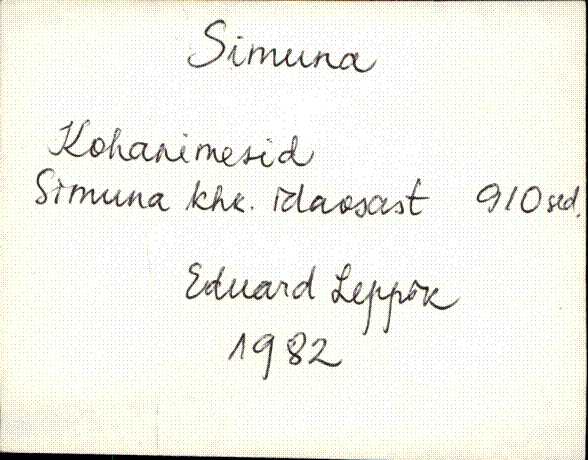 Simuna
Kohanimesid
Simuna khk. idaosast 910 sed.
Eduard Leppik
1982